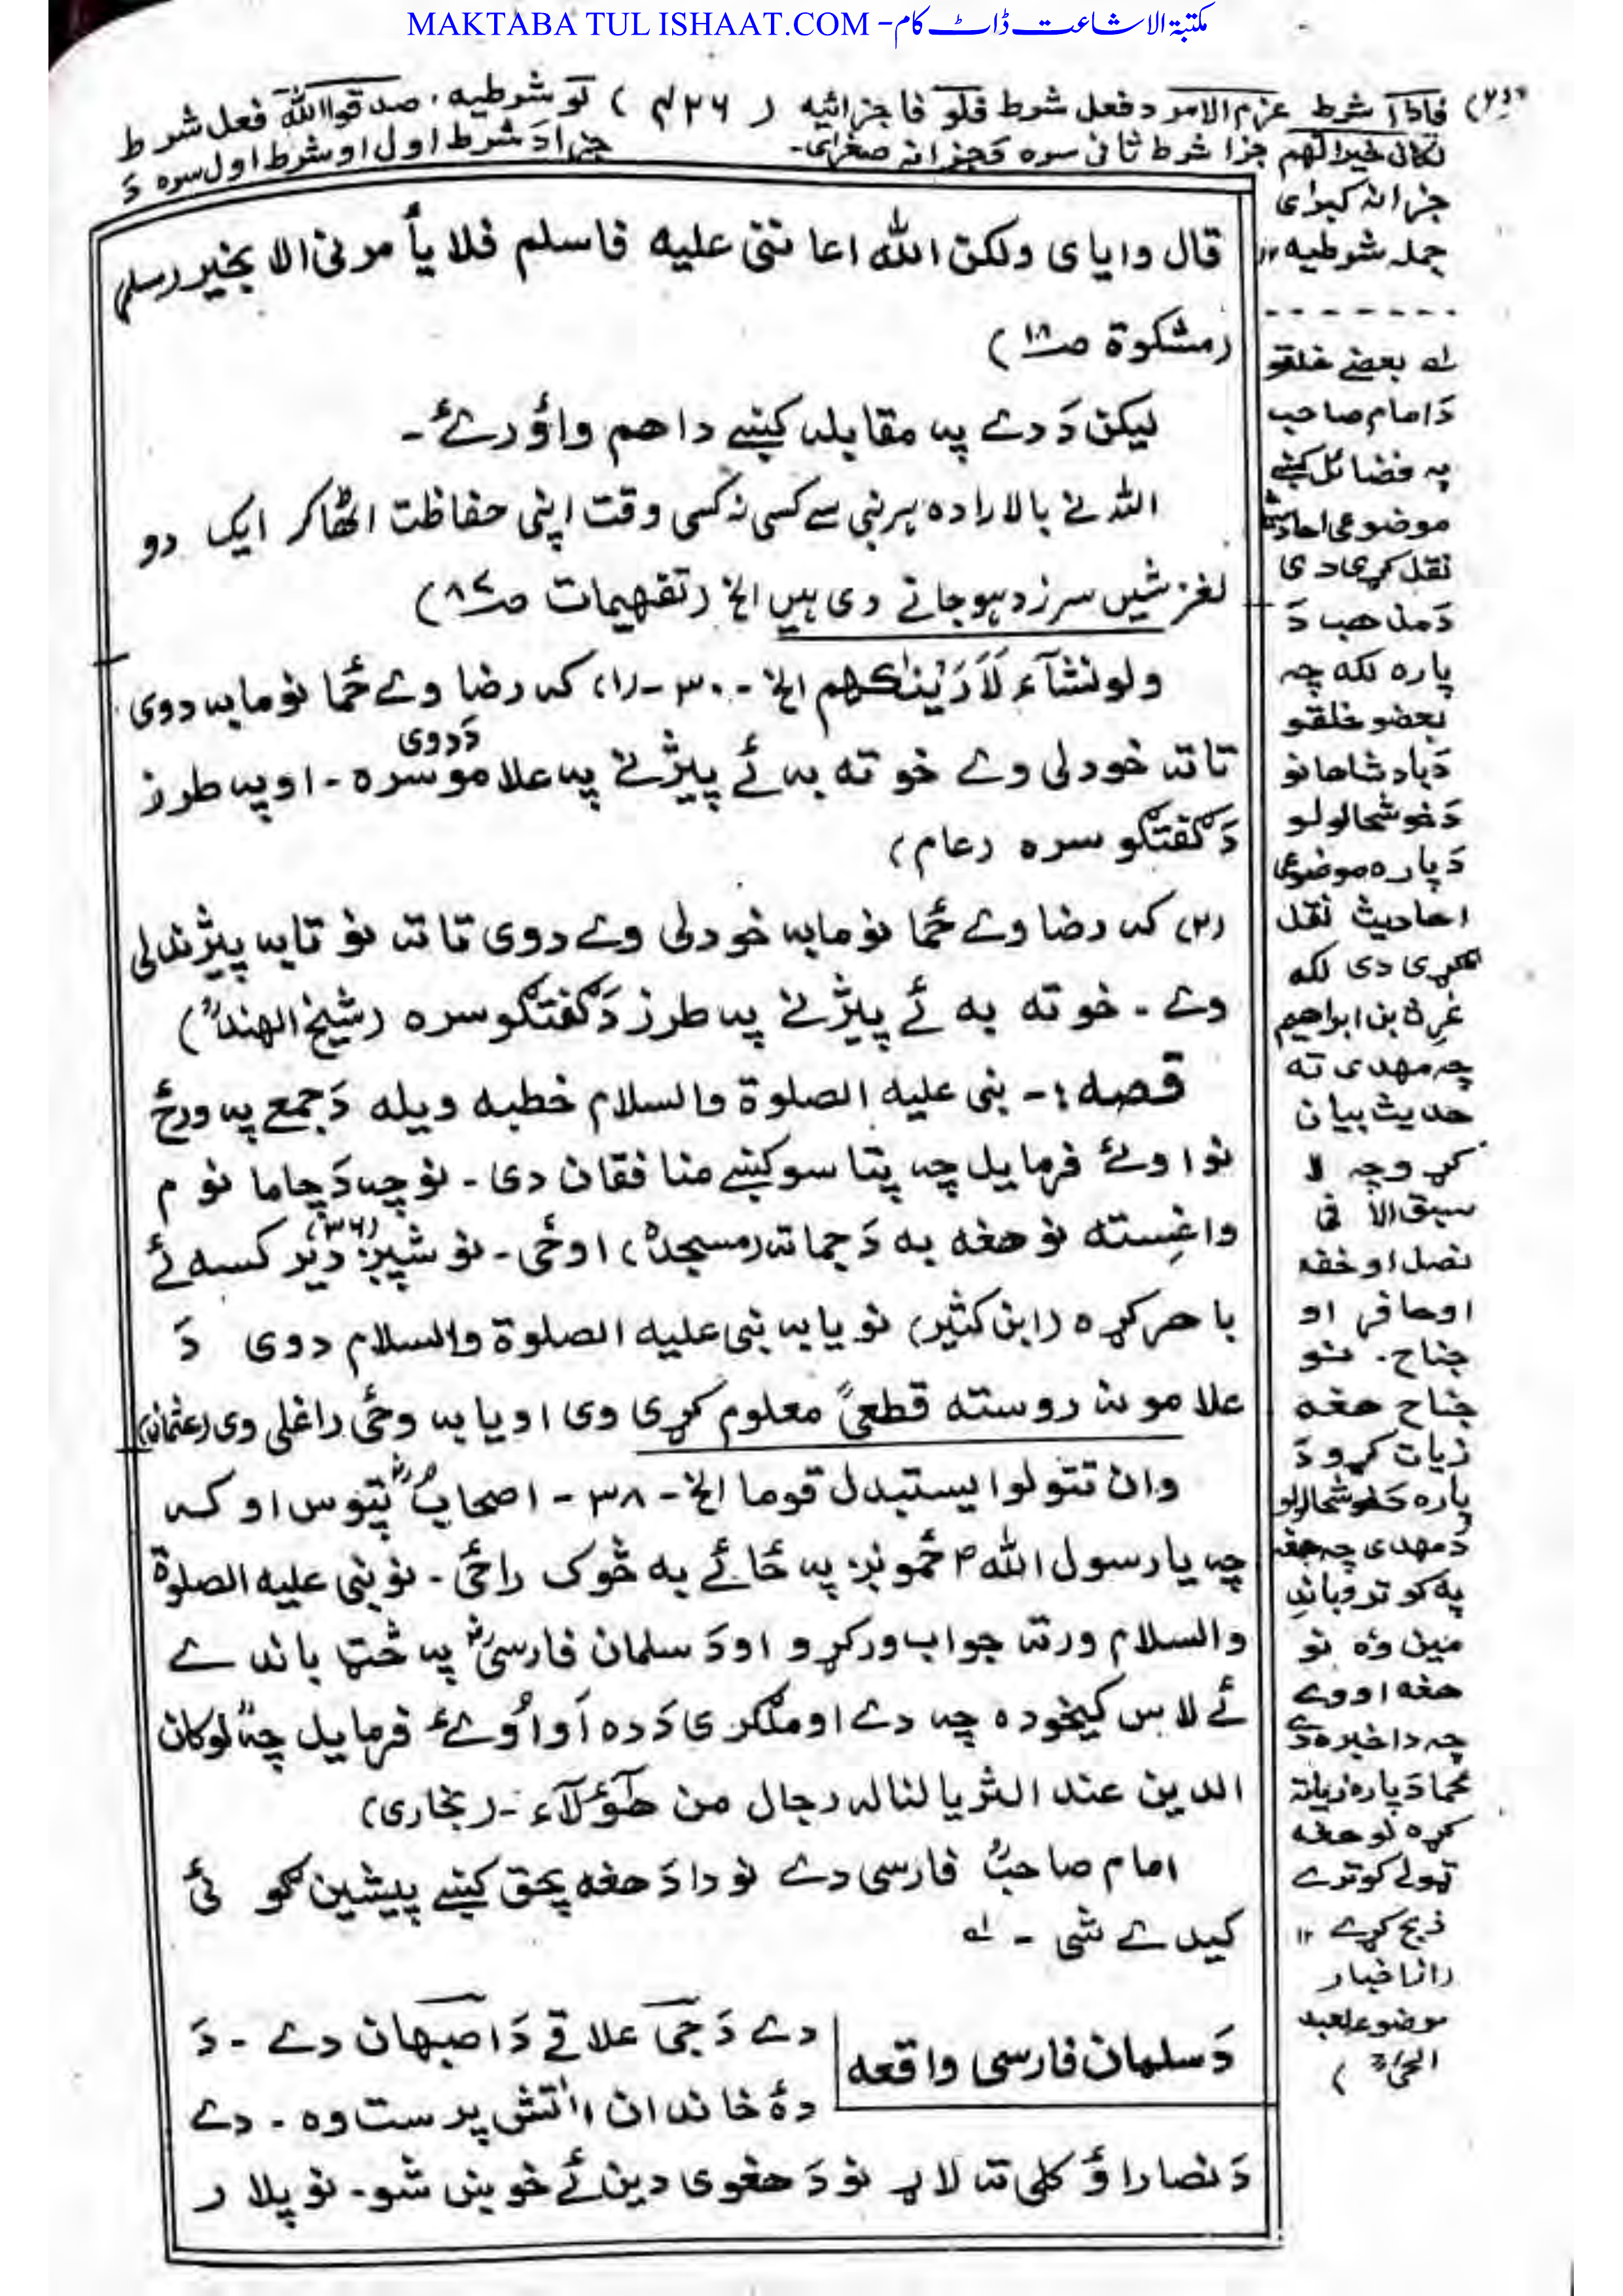 MAKTABA TUL ISHAAT.COM - مکتبۃ الاشاعت ڈاٹ کام
(۲) فاذا شرط عزم الامر د فعل شرط فلو فا جزائیه ( ۲۶ ) لو شرطیه، صدقوا الله فعل شرط
لکان خیرا لهم جزا شرط ثانی سره د جزا نه صغرای۔ جزا دَ شرط اول او شرط اول سره دَ
جزا نه کبرٰی
جمله شرطیه ۱۲
قال وایای ولکن الله اعاننی علیه فاسلم فلا یأمرنی الا بخیر (مسلم)
(مشکوة صـ۱۸)
لیکن دَ دے په مقابله کښے دا هم واؤرئ۔
اللہ نے بالارادہ ہر نبی سے کسی نہ کسی وقت اپنی حفاظت اٹھا کر ایک دو
لغزشیں سرزد ہو جانے دی ہیں الخ (تفہیمات
ولو نشآء لَاَرَیْنٰکهم الخ - ۳۰ - (۱) که رضا وے ځما نو ما به دوی
تا ته خودلی وے خو ته به ئے پیژنے په علامو دَ دوی سره - او په طرز
دَ گفتگو سره (عام)
(۲) که رضا وے ځما نو ما به خودلی وے دوی تا ته نو تا به پیژندلی
وے - خو ته به ئے پیژنے په طرز دَ گفتگو سره (شیخ الهندؒ)
قصه :- نبی علیه الصلوة والسلام خطبه ویله دَ جمعے په ورځ
نو اوئے فرمایل چه پتاسو کښے منافقان دی - نو چه دَ چا ما نوم
واغسته نو هغه به دَ جماته (مسجد) اوځی - نو شپږ دیرش (۳۶) کسه ئے
باهر کړه (ابن کثیر) نو یا به نبی علیه الصلوة والسلام دوی دَ
علامو نه روسته قطعیً معلوم کړی وی او یا به وحی راغلی وی (عثمانی)
وان تتولوا یستبدل قوما الخ - ۳۸ - اصحابو تپوس اوکه
چه یا رسول الله ځمونږ په ځائے به څوک راځی - نو نبی علیه الصلوة
والسلام ورته جواب ورکړو او دَ سلمان فارسیؓ په باندے
ئے لاس کیخوده چه دے او ملگری دَ ده او اوئے فرمایل چه لوکان
الدین عند الثریا لناله رجال من هٰؤلآء - (بخاری)
امام صاحبؒ فارسی دے نو دا دَ هغه پحق کښے پیشین گوئی
کیدے شی -
دَ سلمان فارسی واقعه
دے دَ جی علاقے دَ اصبهان دے - دَ
دهٔ خاندان آتش پرست وه - دے
دَ نصاراؤ کلی ته لاړ نو دَ هغوی دین ئے خوښ شو - نو پلار
بعضے خلقو
دَ امام صاحب
په فضائل کښے
موضوعی احادیث
نقل کړی دی
دَ مذهب دَ
پاره لکه چه
بعضو خلقو
دَ بادشاهانو
دَ خوشحالولو
دَ پاره موضوعی
احادیث نقل
کړی دی لکه
بن ابراهیم
چه مهدی ته
حدیث بیان
کړو چه لا
سبق الا فی
نصل او خف
او حافر او
جناح - نو
جناح هغه
زیات کړو دَ
پاره دَ خوشحالولو
دَ مهدی چه هغه
په کوترو باندِ
مین وه نو
هغه اووے
چه دا خبره دے
ځما دَ پاره زیاته
کړه نو هغه
ټولے کوترے
ذبح کړے ۱۲
موضوعه لعبد
الحئ )